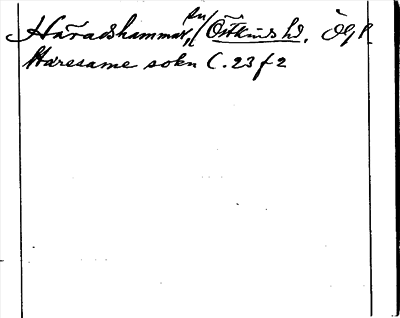 Häradshammar, sn Östkinds hd. Ög.
Haresame sokn C. 23 f 2